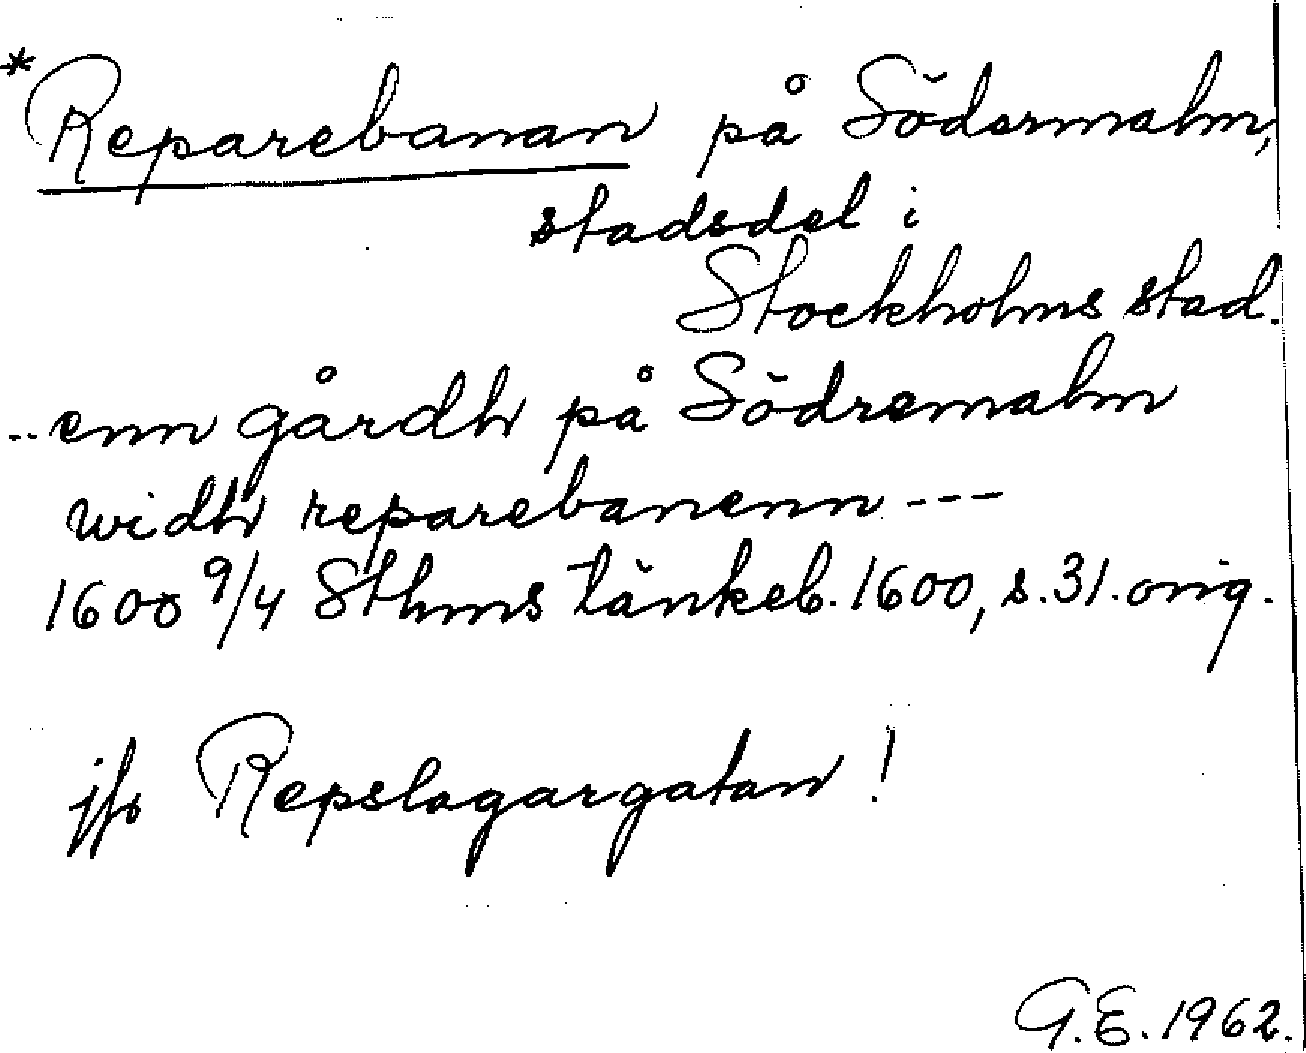 *Reparebanan på Södermalm,
stadsdel i
Stockholms stad.
..enn gårdh på Södremalm
widh reparebanenn ---
1600 9/4 Sthms tänkeb. 1600, s. 31. orig.
jfr Repslagargatan!
G.E. 1962.